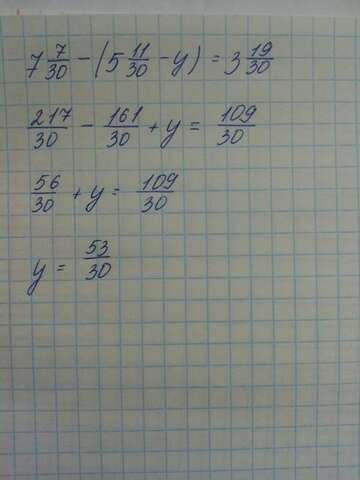 7 7/30 - (5 11/30 - y) = 3 19/30
217/30 - 161/30 + y = 109/30
56/30 + y = 109/30
y = 53/30